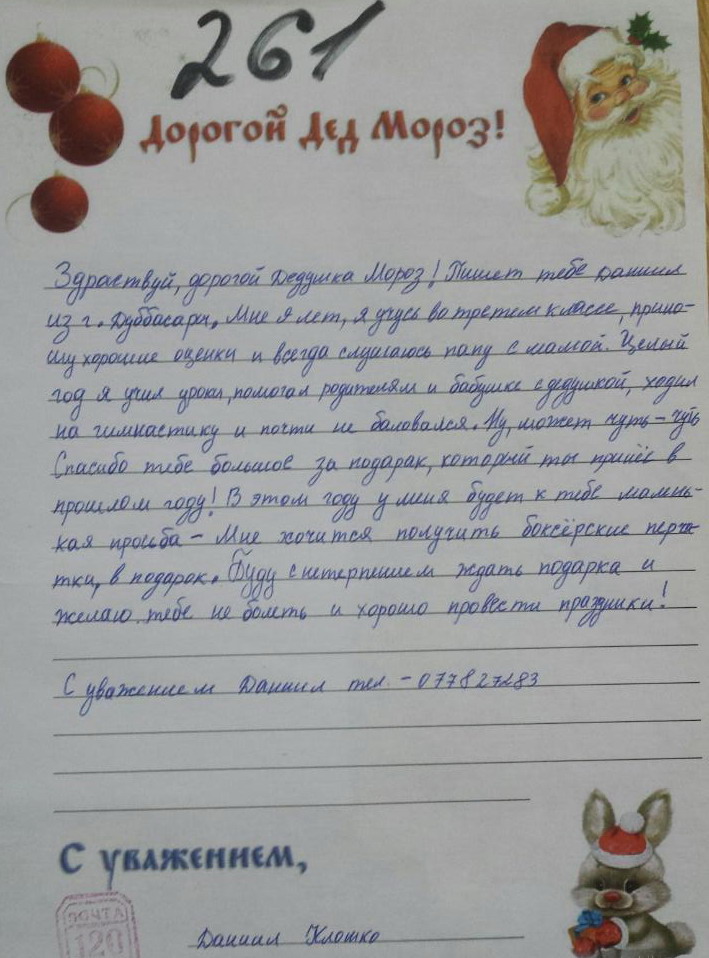 261
Дорогой Дед Мороз!
Здраствуй, дорогой Дедушка Мороз! Пишет тебе Даниил
из г. Дуббасары. Мне 9 лет, я учусь во третем классе, прино-
шу хорошие оценки и всегда слушаюсь папу с мамой. Целый
год я учил уроки, помогал родителям и бабушке с дедушкой, ходил
на гимнастику и почти не баловался. Ну, может чуть-чуть
Спасибо тебе большое за подарак, который ты принёс в
прошлом году! В этом году у меня будет к тебе малень-
кая проьба - Мне хочится получить боксёрские перча-
тки, в подарок. Буду с нетерпением ждать подарка и
желаю тебе не болеть и хорошо провести праздники!
С уважением Даниил тел. - 077827283
С уважением,
ПОЧТА
120
Даниил Клошко